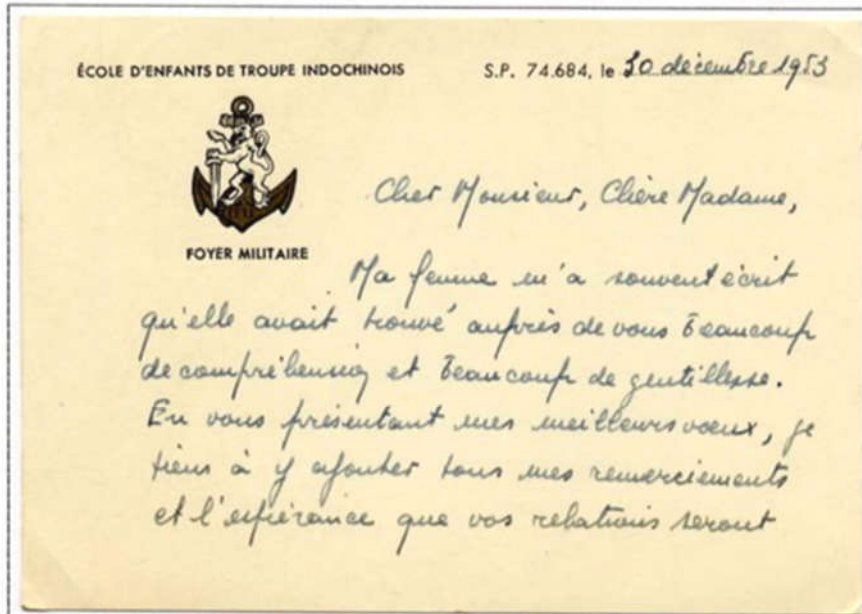 ÉCOLE D'ENFANTS DE TROUPE INDOCHINOIS
S.P. 74.684, le 30 décembre 1953
FOYER MILITAIRE
Cher Monsieur, Chère Madame,
Ma femme m'a souvent écrit
qu'elle avait trouvé auprès de vous beaucoup
de compréhension et beaucoup de gentillesse.
En vous présentant mes meilleurs vœux, je
tiens à y ajouter tous mes remerciements
et l'espérance que vos relations seront